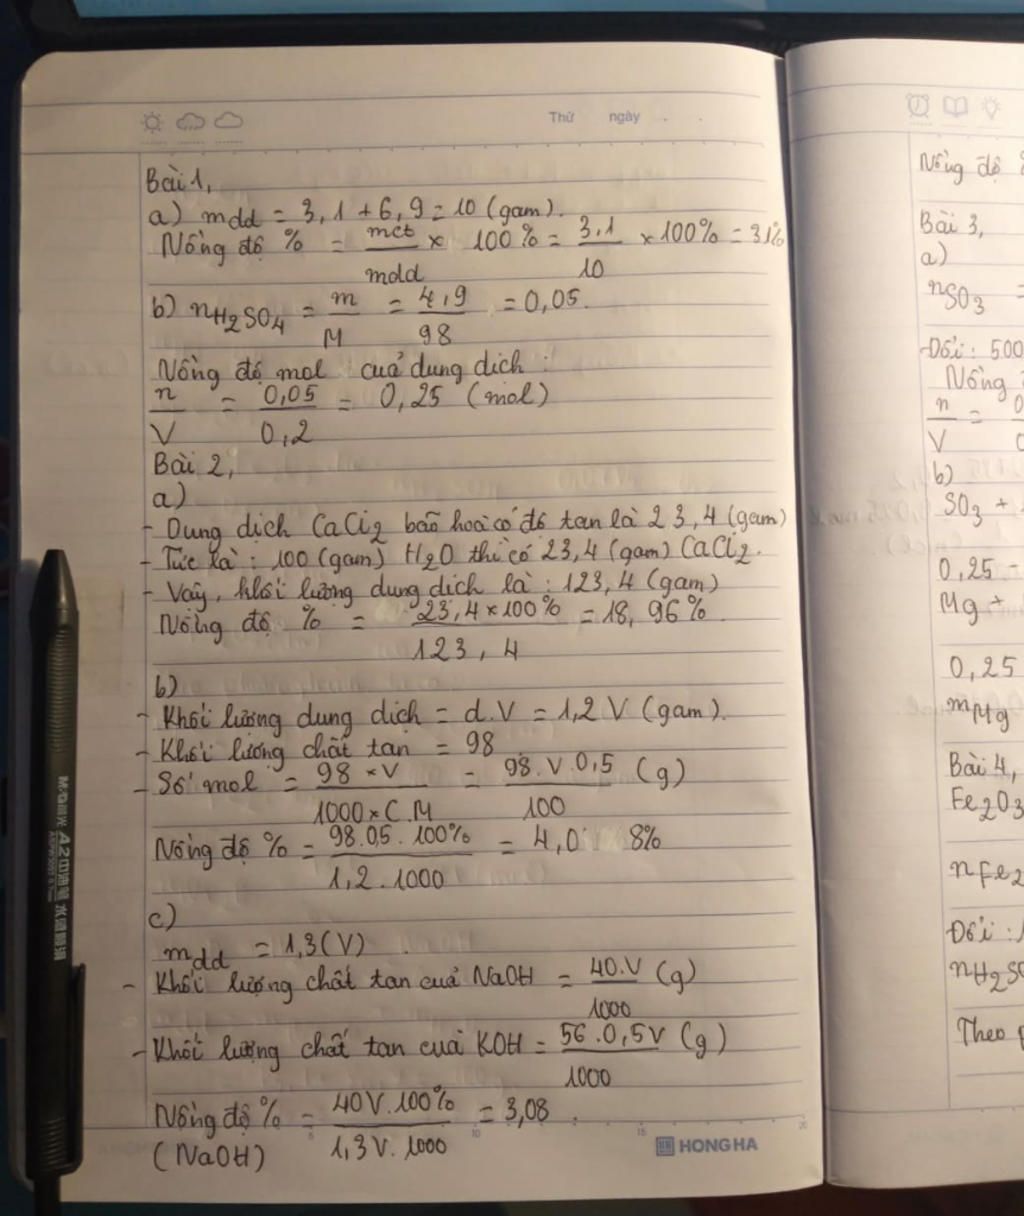 Thứ ngày
Bài 1,
a) mdd = 3,1 + 6,9 = 10 (gam).
Nồng độ % = mct/mdd × 100% = 3,1/10 × 100% = 31%
b) nH2SO4 = m/M = 4,9/98 = 0,05.
Nồng độ mol của dung dịch :
n/V = 0,05/0,2 = 0,25 (mol)
Bài 2,
a)
- Dung dịch CaCl2 bão hoà có độ tan là 23,4 (gam)
- Tức là : 100 (gam) H2O thì có 23,4 (gam) CaCl2.
- Vậy, khối lượng dung dịch là : 123,4 (gam)
Nồng độ % = 23,4 × 100%/123,4 = 18,96%.
b)
- Khối lượng dung dịch = d.V = 1,2 V (gam).
- Khối lượng chất tan = 98
- Số mol = 98 × V/1000 × C.M = 98.V.0,5/100 (g)
Nồng độ % = 98.0,5.100%/1,2.1000 = 4,0 8%
c)
mdd = 1,3 (V)
- Khối lượng chất tan của NaOH = 40.V/1000 (g)
- Khối lượng chất tan của KOH = 56.0,5V/1000 (g)
Nồng độ % = 40V.100%/1,3V.1000 = 3,08
(NaOH)
HONG HA
Nồng độ
Bài 3,
a)
nSO3 =
- Đổi : 500
Nồng
n/V = 0
b)
SO3 +
0,25
Mg +
0,25
mMg
Bài 4,
Fe2O3
nFe2
Đổi :
nH2SO
Theo
M&G 晨光 A2中油笔